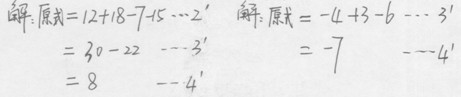 解:原式=12+18-7-15 …2'
=30-22 …3'
=8 …4'
解:原式=-4+3-6 …3'
=-7 …4'